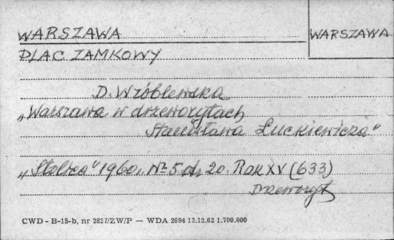 WARSZAWA
WARSZAWA
PLAC ZAMKOWY
D. Wróblewska
„Warszawa w drzeworytach
Stanisława Łuckiewicza"
„Stolica" 1960 r. Nr 5 str. 20. Rok XV (633)
Drzeworyt
CWD - B-15-b, nr 2827/ZW/P — WDA 2694 13.12.62 1.700.000